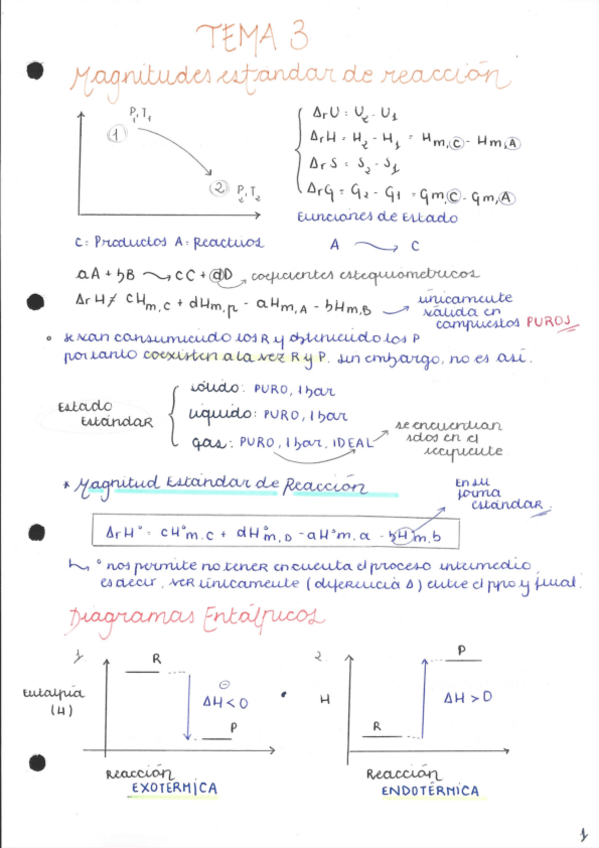 TEMA 3
Magnitudes estándar de reacción
P₁, T₁
1
2 P₂, T₂
ΔrU = U₂ - U₁
ΔrH = H₂ - H₁ = Hm,C - Hm,A
ΔrS = S₂ - S₁
ΔrG = G₂ - G₁ = Gm,C - Gm,A
Funciones de Estado
C = Productos A = Reactivos A → C
aA + bB → cC + dD → coeficientes estequiometricos
ΔrH ≠ CHm,c + dHm,p - aHm,A - bHm,B → únicamente
válida en
compuestos PUROS
• se van consumiendo los R y obteniendo los P
por tanto coexisten a la vez R y P. sin embargo, no es así.
Estado
Estándar
sólido: PURO, 1 bar
líquido: PURO, 1 bar
gas: PURO, 1 bar, IDEAL
se encuentran
solos en el
recipiente
* Magnitud Estándar de Reacción
En su
forma
estándar
ΔrH° = cH°m,c + dH°m,D - aH°m,a - bH°m,b
↳ ° nos permite no tener en cuenta el proceso intermedio,
es decir, ver únicamente (diferencia Δ) entre el ppio y final.
Diagramas Entálpicos
1
R
Entalpía
(H)
⊖
ΔH < 0
P
Reacción
EXOTÉRMICA
2.
P
H
ΔH > 0
R
Reacción
ENDOTÉRMICA
1